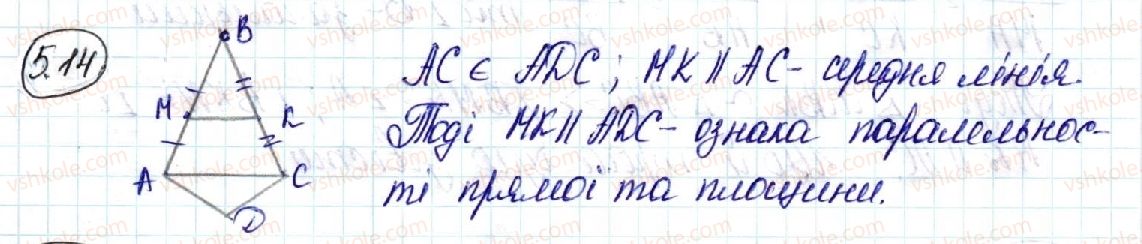 5.14.
B
M
K
A
C
D
AC є ADC; MK || AC - середня лінія.
Тоді MK || ADC - ознака паралельнос-
ті прямої та площини.
vshkole.com